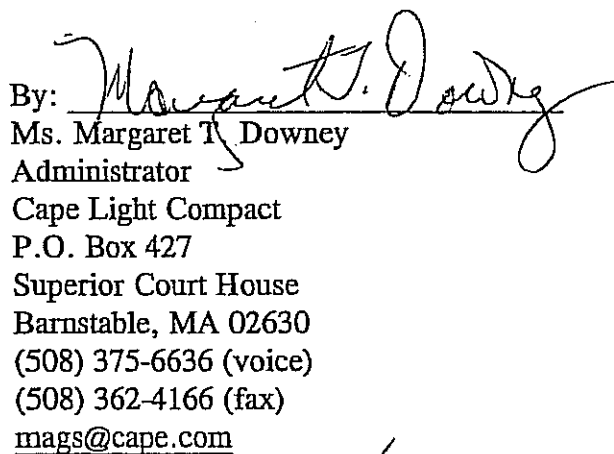 By: Margaret T. Downey
Ms. Margaret T. Downey
Administrator
Cape Light Compact
P.O. Box 427
Superior Court House
Barnstable, MA 02630
(508) 375-6636 (voice)
(508) 362-4166 (fax)
mags@cape.com